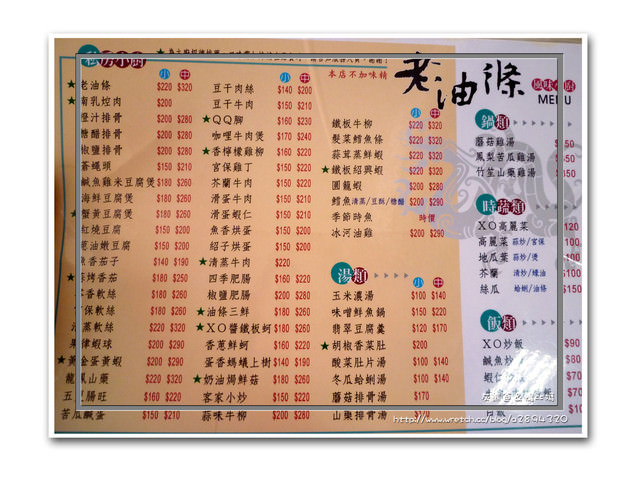 私房小廚
本店不加味精
老油條
風味小廚
MENU
小 中
★老油條 $220 $320
★南乳焢肉 $200
橙汁排骨 $200 $280
糖醋排骨 $200 $280
椒鹽排骨 $200 $280
蒼蠅頭 $150 $210
鹹魚雞米豆腐煲 $180 $260
海鮮豆腐煲 $180 $260
★蟹黃豆腐煲 $180 $260
紅燒豆腐 $150 $200
蔥油嫩豆腐 $150 $200
魚香茄子 $140 $190
烤香茄 $180 $250
香軟絲 $180 $260
保軟絲 $180 $260
蒸軟絲 $220 $320
果律蝦球 $200 $290
★黃金蛋黃蝦 $200 $290
龍鳳山藥 $220 $320
五更腸旺 $160 $220
苦瓜鹹蛋 $150 $210
小 中
豆干肉絲 $140 $200
豆干牛肉 $150 $210
★QQ腳 $160 $230
咖哩牛肉煲 $170 $240
★香檸檬雞柳 $160 $220
宮保雞丁 $150 $220
芥蘭牛肉 $150 $210
滑蛋牛肉 $150 $210
滑蛋蝦仁 $150 $210
魚香烘蛋 $150 $200
紹子烘蛋 $150 $200
★清蒸牛肉 $220
四季肥腸 $160 $220
椒鹽肥腸 $160 $220
★油條三鮮 $180 $260
★XO醬鐵板蚵 $180 $260
香蔥鮮蚵 $160 $220
蛋香螞蟻上樹 $140 $190
★奶油焗鮮菇 $180 $260
客家小炒 $150 $220
蒜味牛柳 $200 $280
小 中
鐵板牛柳 $220 $320
髮菜鱈魚條 $220 $320
蒜茸蒸鮮蝦 $220 $320
★鐵板紹興蝦 $220 $320
圓籠蝦 $200 $280
鱈魚 清蒸/豆酥/糖醋 $200 $290
季節時魚 時價
冰河油雞 $200 $290
湯類
小 中
玉米濃湯 $100 $140
味噌鮮魚鍋 $150 $220
翡翠豆腐羹 $120 $170
★胡椒香菜肚 $200
酸菜肚片湯 $100 $140
冬瓜蛤蜊湯 $100 $140
蘑菇排骨湯 $170
山藥排骨湯
鍋類
蘑菇雞湯
鳳梨苦瓜雞湯
竹笙山藥雞湯
時蔬類
XO高麗菜 $120
高麗菜 蒜炒/宮保 $100
地瓜葉 蒜炒/燙 $100
芥蘭 清炒/蠔油 $100
絲瓜 蛤蜊/油條 $150
飯類
XO炒飯 $90
鹹魚炒 $80
蝦仁炒
http://www.wretch.cc/blog/a2894320